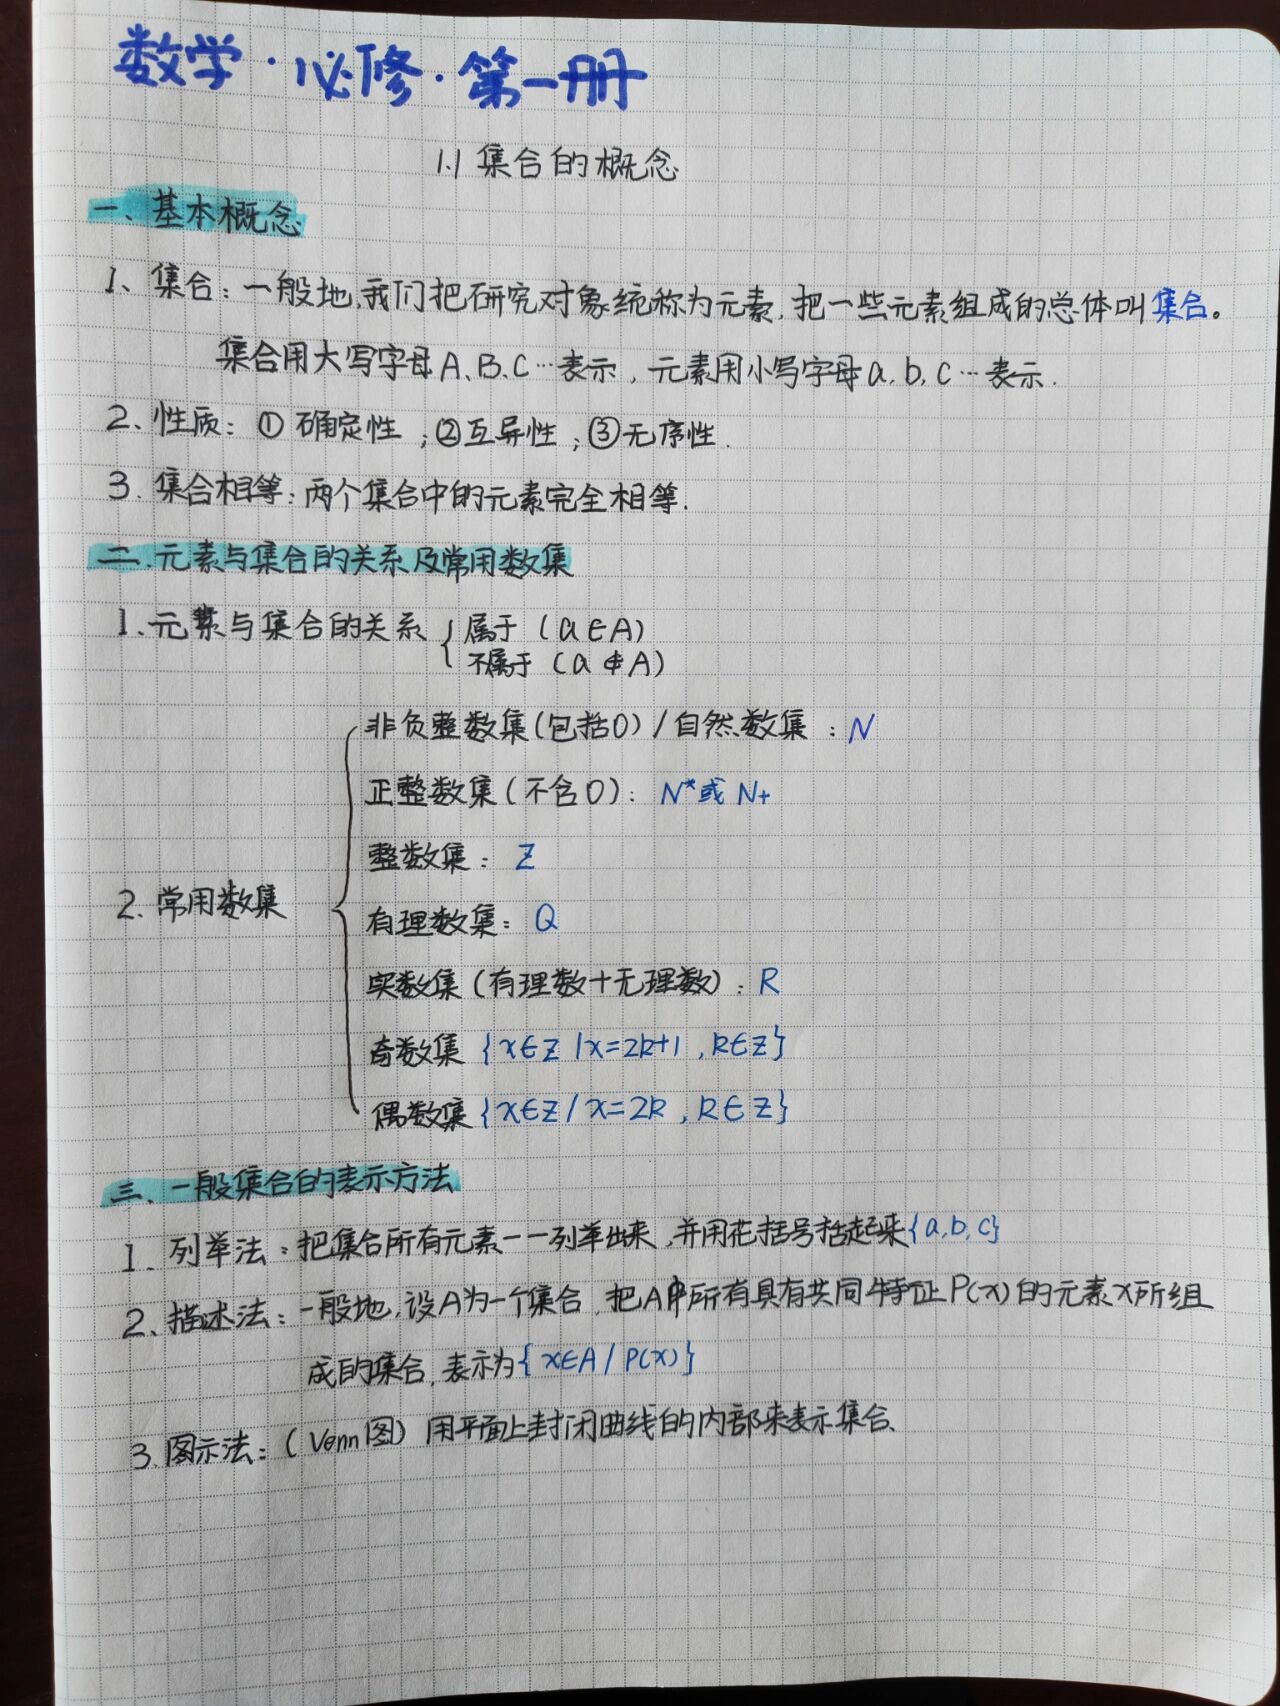 数学·必修·第一册
1.1 集合的概念
一、基本概念
1、集合：一般地，我们把研究对象统称为元素，把一些元素组成的总体叫集合。
集合用大写字母A、B、C…表示，元素用小写字母a，b，c…表示．
2、性质：①确定性；②互异性；③无序性．
3．集合相等：两个集合中的元素完全相等．
二．元素与集合的关系及常用数集
1、元素与集合的关系 { 属于（a∈A）
不属于（a∉A）
非负整数集（包括0）/自然数集：N
正整数集（不含0）：N*或N+
整数集：Z
2．常用数集
有理数集：Q
实数集（有理数+无理数）：R
奇数集 {x∈Z | x=2k+1，k∈Z}
偶数集 {x∈Z / x=2k，k∈Z}
三、一般集合的表示方法
1、列举法：把集合所有元素一一列举出来，并用花括号括起来{a,b,c}
2、描述法：一般地，设A为一个集合，把A中所有具有共同特征P(x)的元素x所组
成的集合，表示为{x∈A / P(x)}
3．图示法：（Venn图）用平面上封闭曲线的内部来表示集合、